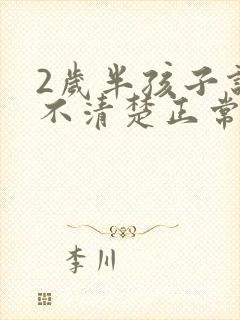 2歲半孩子
不清楚正常
李川